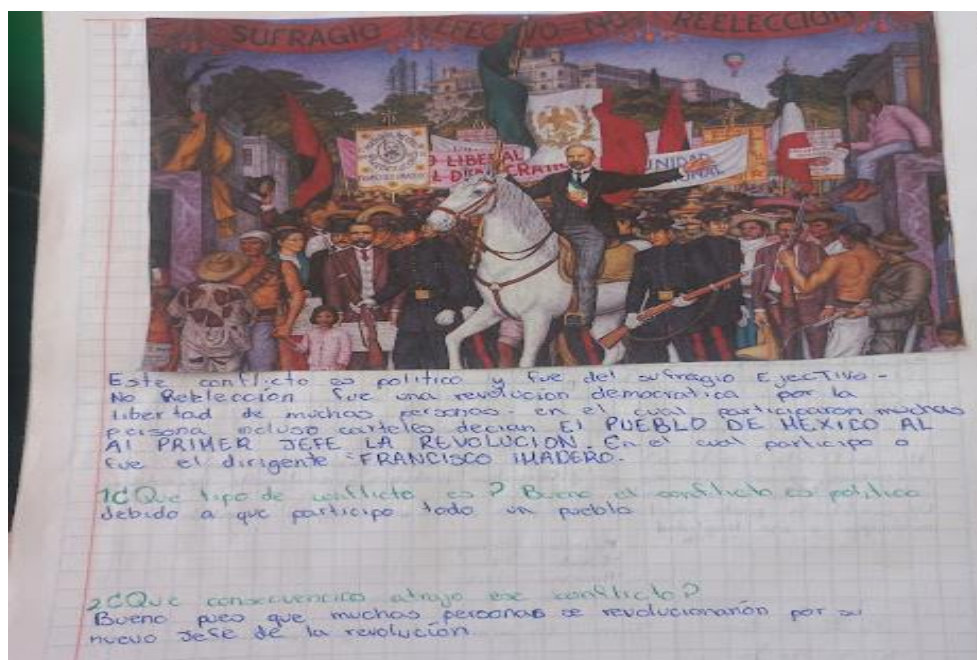 SUFRAGIO EFECTIVO-NO REELECCION
LIBERAL
UNIDAD
Este conflicto es politico y fue del sufragio EjecTivo-
No Reelección fue una revolucion democratica por la
libertad de muchas personas- en el cual participaron muchas
persona incluso carteles decian El PUEBLO DE MEXICO AL
Al PRIMER JEFE LA REVOLUCION. En el cual participo o
fue el dirigente FRANCISCO IMADERO.
1¿Que tipo de conflicto es? Bueno el conflicto es politico
debido a que participo todo un pueblo
2¿Que consecuencias atrajo ese conflicto?
Bueno pues que muchas personas se revolucionarón por su
nuevo Jefe de la revolución